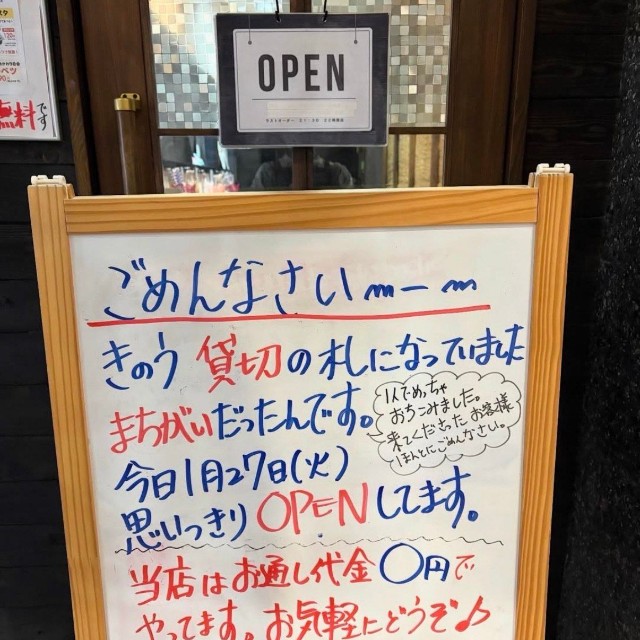 OPEN
ごめんなさいm−m
きのう貸切の札になっていました
まちがいだったんです。
1人でめっちゃ
おちこみました。
来てくださったお客様
ほんとにごめんなさい。
今日1月27日(火)
思いっきりOPENしてます。
当店はお通し代金〇円で
やってます。お気軽にどうぞ♪
無料です